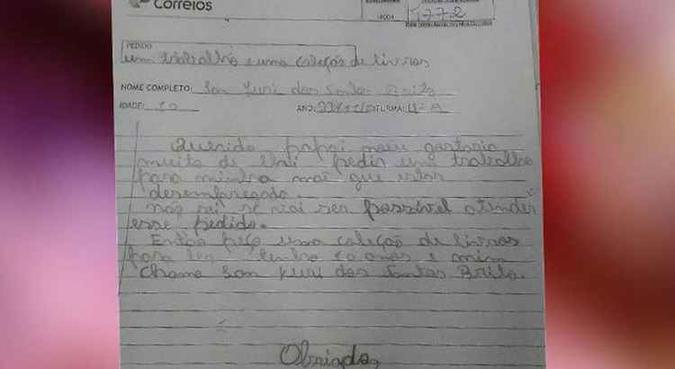 Correios
1772
PEDIDO:
um trabalho e uma coleção de livros
NOME COMPLETO: Son Yuri dos Santos Brito
IDADE: 10 ANO: TURMA: A
Querido papai noeu gostaria
muito de lhi pedir um trabalho
para minha mãe que estar
desempregada.
não sei se vai ser possível atender
esse pedido.
Então peço uma coleção de livros
para ler tenho 10 anos e mim
chamo Son Yuri dos Santos Brito.
Obrigado